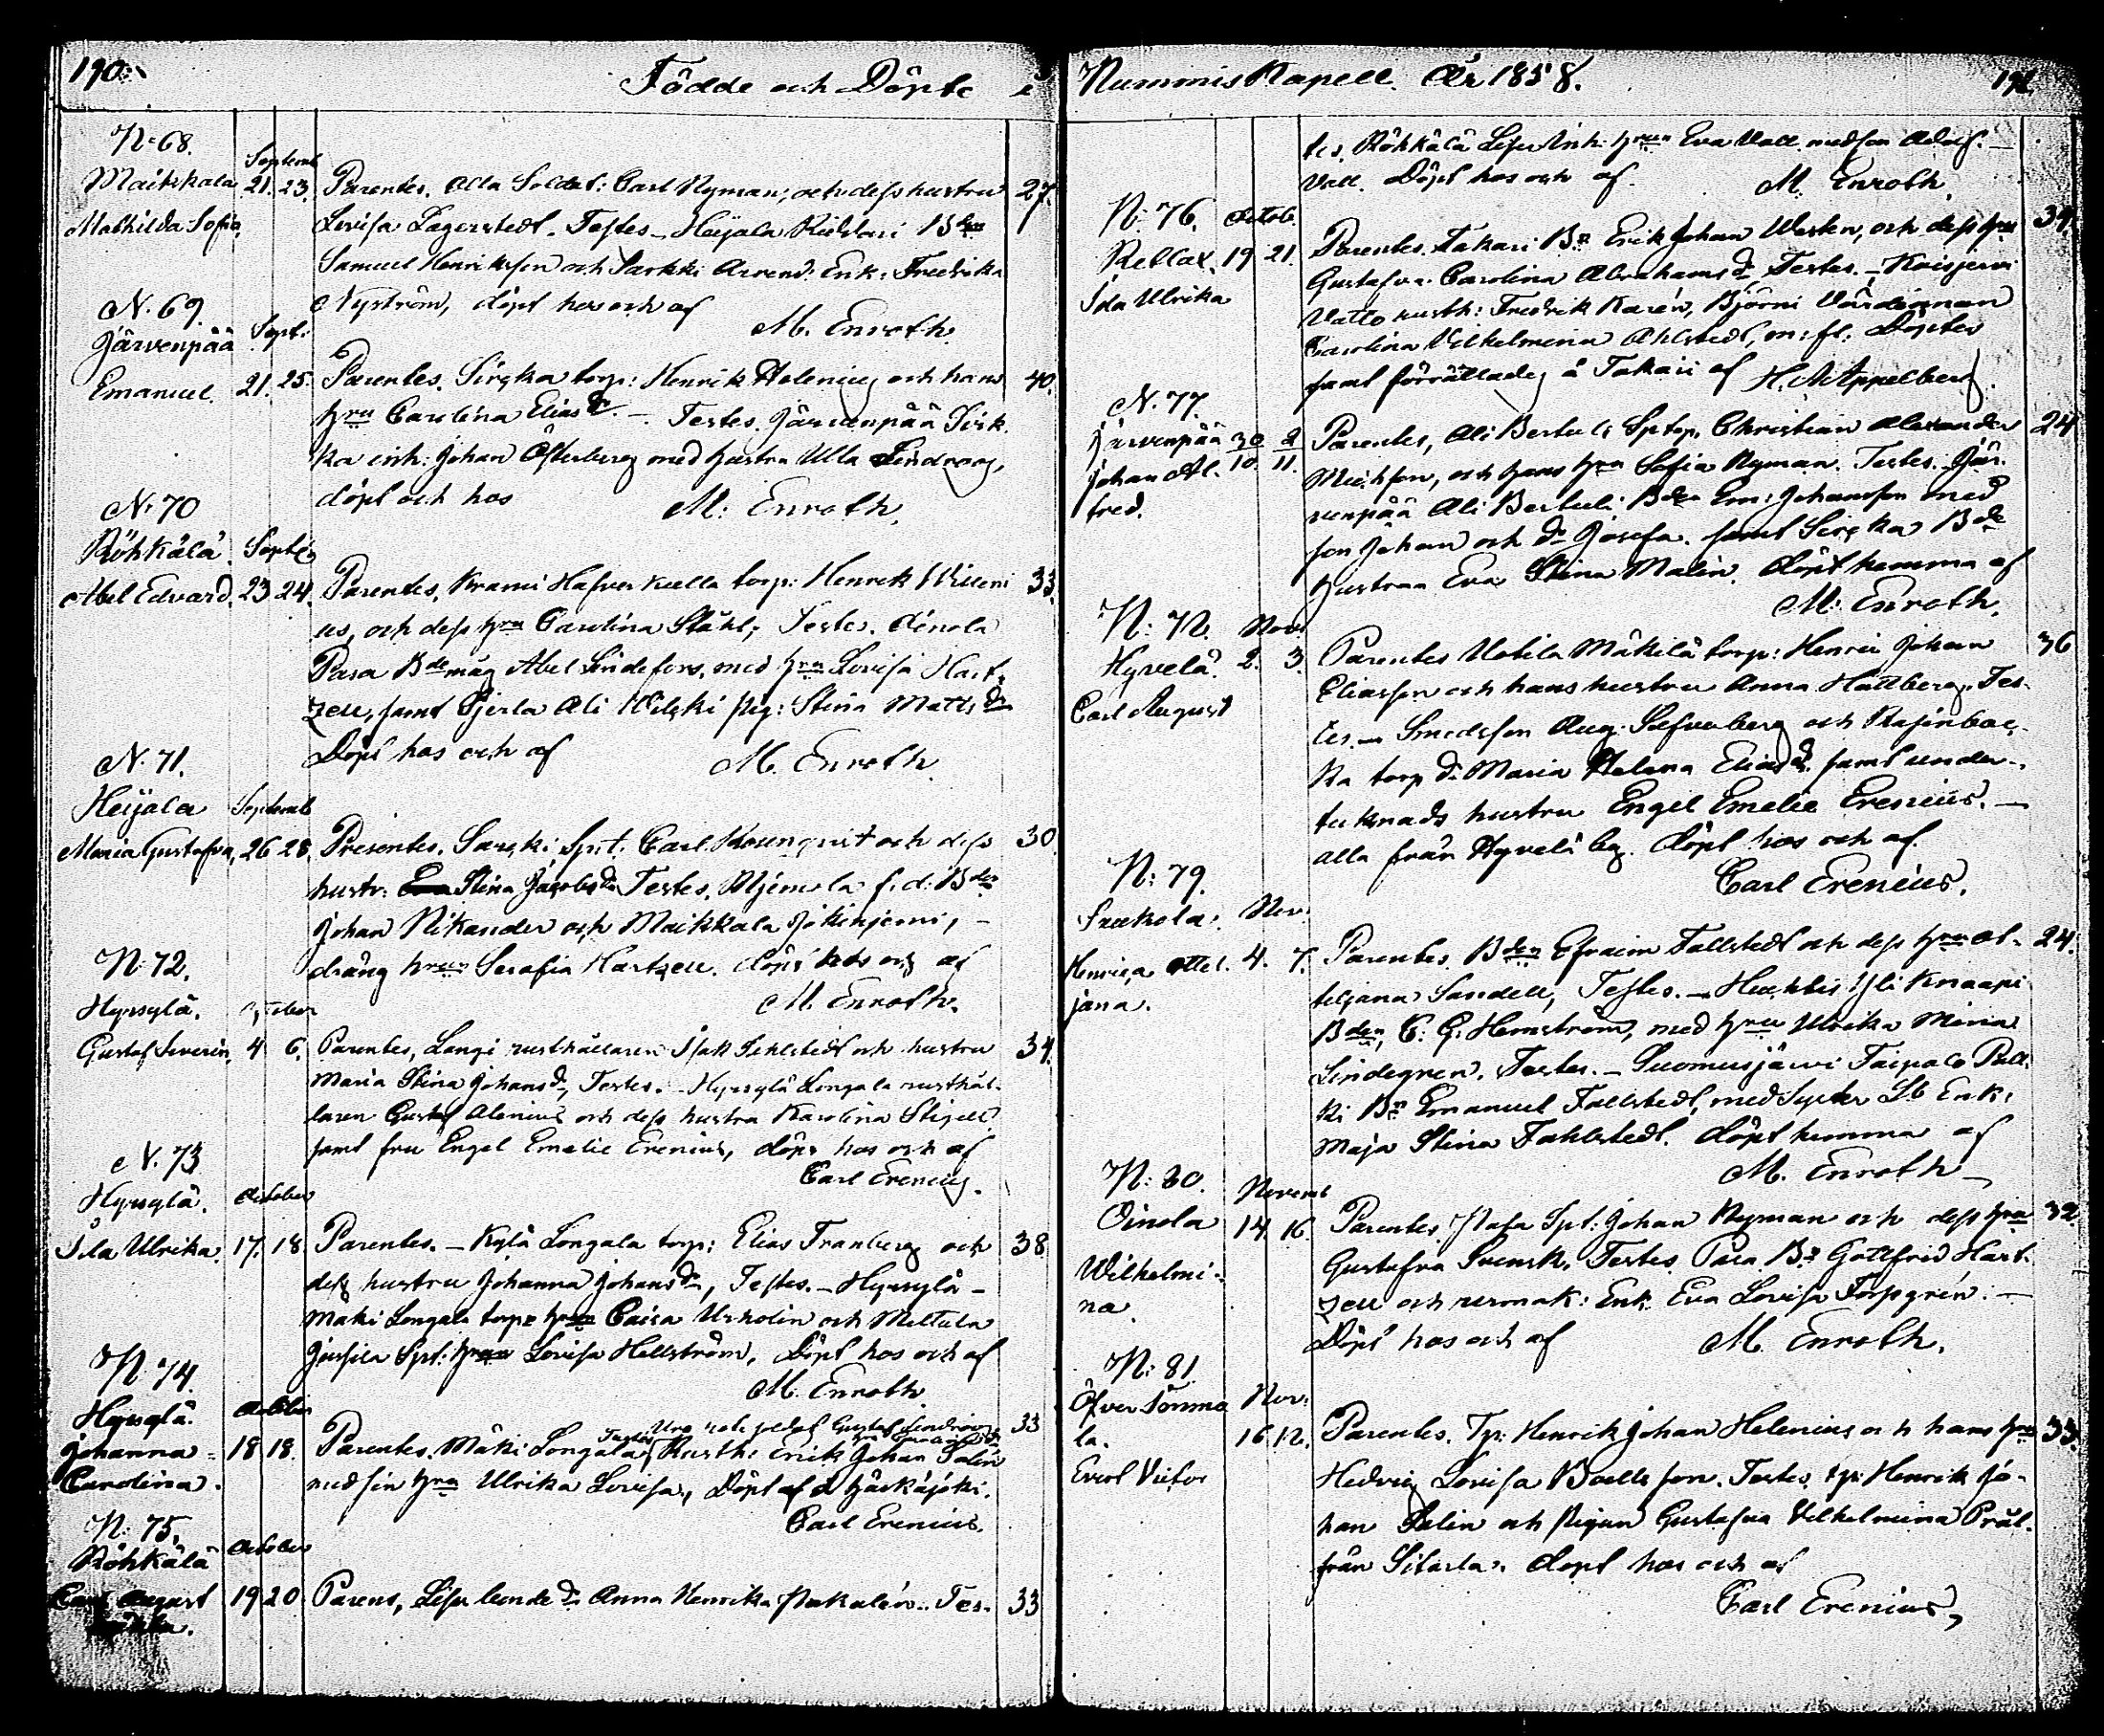 190.
Födde och Döpte i
N:68.
Maikkala
Mathilda Sofia
Septemb
21. 23.
Parentes. Alla Soldat: Carl Nyman, och dess hustru 27.
Lovisa Lagerstedt. Testes - Heijala
Samuel Henriksson och Sarkki Arrend: Enk: Fredrika
Nyström, döpt hos och af
M. Enroth.
N. 69.
Järvenpää
Emanuel.
Sept:
21. 25.
Parentes. Sirkka torp: Henrik Helenius och hans 40.
hru Carolina Elias dr. - Testes. Järvenpää Sirk
ka inh: Johan Österberg med hustru Ulla Lindroos,
döpt och hos M: Enroth.
N: 70
Röhkälä.
Abel Edvard.
Septb
23 24.
Parentes, Krami Hafverkulla torp: Henrik Willeni 33.
us, och dess hru Carolina Ståhl; Testes. Oinola
Pasa Bde måg Abel Lindefors, med hru Lovisa Hart-
zell, samt Gjerla Ali Wilski pig: Stina Matts dr
Döpt hos och af M. Enroth.
N. 71.
Heijala
Maria Gustafva,
Septemb
26 28.
Parentes. Sarki Spt: Carl Rosenqvist och dess 30.
hustr: Stina Jacobs dr Testes. f.d: Bden
Johan Nikander och Maikkala Jokinjerni, -
dräng hrun Serafia Hartzell. döpt hos och af
M. Enroth.
N: 72.
Hyrsylä.
Gustaf Severin,
October
4 6.
Parentes, Langi rusthållaren Isak Fehlstedt och hustru 34.
Maria Stina Johans dr, Testes. - Hyrsylä Longala rusthål-
laren Gustaf Alenius och dess hustru Karolina Stigell
samt fru Engel Emelie Erenius, döpt hos och af
Carl Erenius.
N. 73
Hyrsylä.
Ida Ulrika.
October
17. 18
Parentes. - Kylä Longala torp: Elias Franberg och 38
dess hustru Johanna Johans dr, Testes. - Hyrsylä -
Mäki Longala torp hru Caisa Urholin och Mettula
Jussila Spt: hrun Lovisa Hellström, Döpt hos och af
M. Enroth
N: 74.
Hyrsylä.
Johanna -
Carolina.
October
18 18.
Parentes. Mäki Longalas Rusth: Erik Johan Salin 33
med sin hru Ulrika Lovisa, Döpt af
Carl Erenius.
N: 75,
Röhkälä
Carl August
October
19 20
Parens, Liser bonde dr Anna Henrika Tes- 33
Nummis Kapell. År 1858. 191.
tes. Röhkälä Liser Inh: hrun Eva Vall med son Adolf. -
Vall. Döpt hos och af M. Enroth.
N: 76.
Retlax.
Ida Ulrika
Octob.
19 21.
Parentes. Takari Bn Erik Johan Westen, och dess hru 34.
Gustafva Carolina Abrahams dr Testes. - Koisjervi
Vatto rusth: Fredrik Karen, Björni Värdinnan
Carolina Vilhelmina Ahlstedt, m: fl: Döptes
samt förrättades å Takari af H. A. Appelberg.
N. 77.
Järvenpää
Johan Al-
fred.
30 2
10. 11.
Parentes, Ali Bertuli Sptop. Christian Alexander 24
Michsson, och hans hru Sofia Nyman. Testes. - Jär-
venpää Ali Bertuli Bden Em: Johansson med
son Johan och dr Josefa. samt Sirkka Bde
hustrun Eva Stina Malin. döpt hemma af
M: Enroth.
N: 78.
Hyvelä
Carl August
Nov:
2. 3.
Parentes Uotila Mäkilä torp: Henric Johan 36
Eliasson och hans hustru Anna Hallberg. Tes-
tes. - Smedsson Aug: Silfverberg och
ka torp dr Maria Helena Elias dr. samt under-
tecknads hustru Engel Emelie Erenius. -
alla från Hyvelä by. döpt hos och af.
Carl Erenius.
N: 79.
Saukola.
Henrica Otteli-
jana.
Nov:
4. 7.
Parentes. Bden Efraim Fallstedt och dess hru Ot- 24.
teljana Sandell, Testes. - Huhtis Yli Knaapi
Bden, C: G: Hemström, med hru Ulrika Maria
Lindegren, Testes. - Suomusjärvi Taipale Pell-
ki Bn Emanuel Fallstedt, med Syster Lb Enk:
Maja Stina Fahlstedt. döpt hemma af
M. Enroth -
N: 80.
Oinola
Wilhelmi-
na
Novemb
14. 16.
Parentes, Pasa Spt: Johan Nyman och dess hru 32
Gustafva Svensk, Testes. Pasa Bn Gottfrid Hart-
zell och rusmak: Enk. Eva Lovisa Forsgrén. -
Döpt hos och af M. Enroth.
N: 81.
Öfver Nomma
la.
Evert Victor
Nov:
16 12.
Parentes. Tp: Henrik Johan Helenius och hans hru 33.
Hedvig Lovisa Boellsson. Testes. tp: Henrik Jo-
han Salin och Pigan Gustafva Vilhelmina Präl-
från Sitarla. döpt hos och af
Carl Erenius,